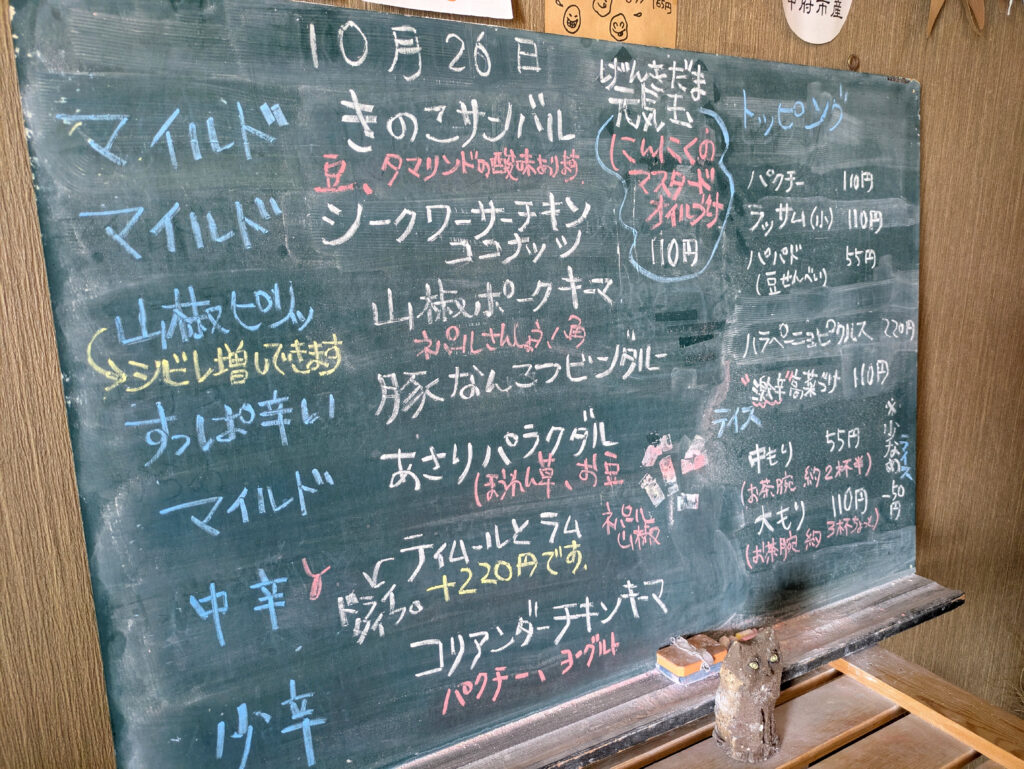 10月26日
マイルド
きのこサンバル
豆、タマリンドの酸味あります
マイルド
シークワーサーチキン
ココナッツ
山椒ピリッ
→シビレ増しできます
山椒ポークキーマ
ネパールさんしょう、八角
すっぱ辛い
豚なんこつビンダルー
マイルド
あさりパラクダル
ほうれん草、お豆
中辛
ティムールとラム
ネパール
山椒
ドライ
タイプ
+220円です
少辛
コリアンダーチキンキーマ
パクチー、ヨーグルト
げんきだま
元気玉
にんにくの
マスタード
オイルづけ
110円
トッピング
パクチー 110円
ラッサム(小) 110円
パパド 55円
(豆せんべい)
ハラペーニョピクルス 220円
"激辛"高菜づけ 110円
ライス
中もり 55円
(お茶腕 約2杯半)
大もり 110円
(お茶腕 約3杯ちょっと)
※少なめ
ライス
-50円
55円
甲府市産